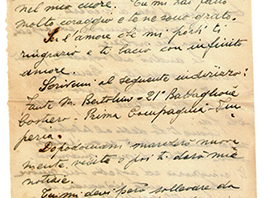 nel mio cuore. Tu mi hai fatto
molto coraggio e te ne sono grato.
Se l'amore che mi porti ti
ringrazio e ti bacio con infinito
amore.
Scrivimi al seguente indirizzo:
M. Bertolino - 21° Battaglione
Prima Compagnia - Im-
peria.
Dopodomani marcherò nuova
mente visita e poi ti darò mie
notizie.
Tu mi devi però sollevare da